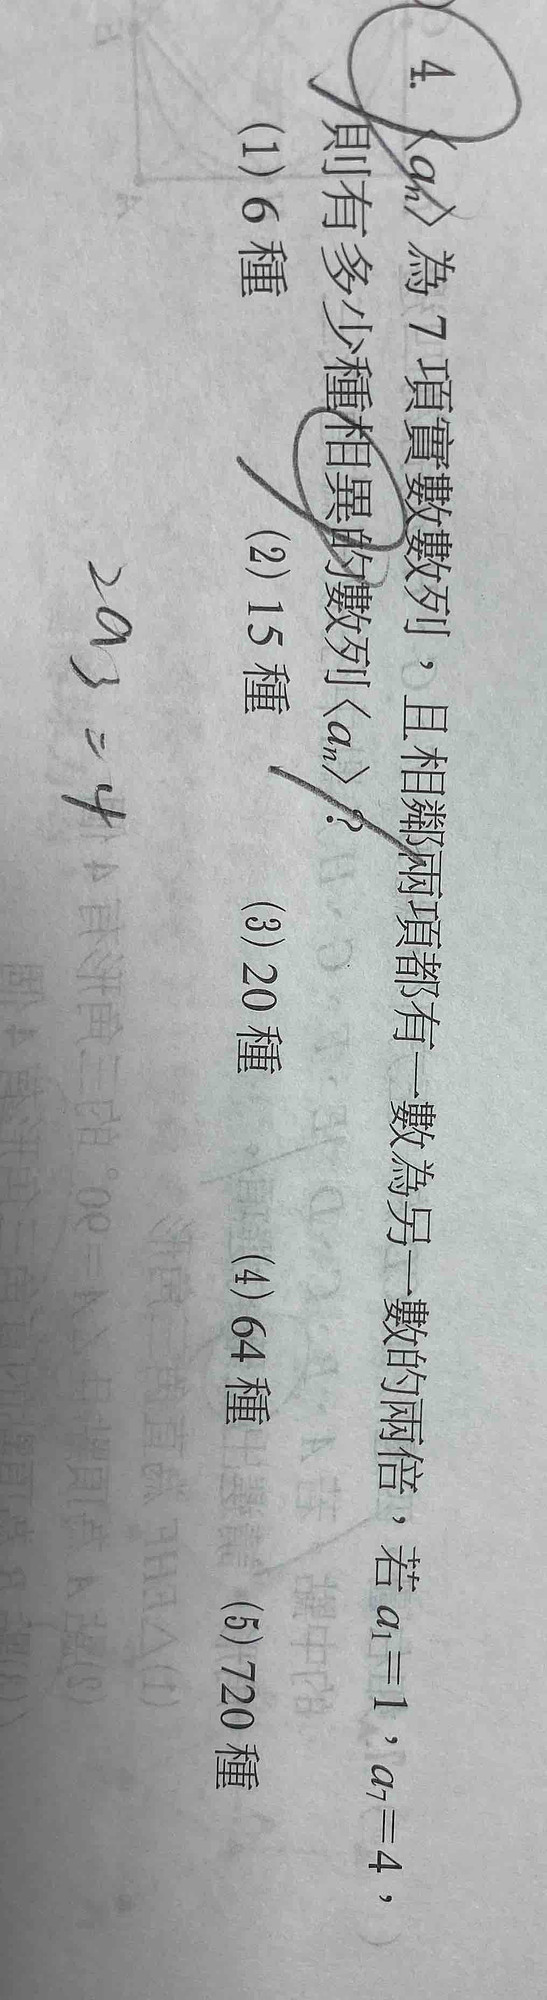 4. ⟨aₙ⟩為 7 項實數數列，且相鄰兩項都有一數為另一數的兩倍，若 a₁＝1，a₇＝4，
則有多少種相異的數列⟨aₙ⟩？
(1) 6 種 (2) 15 種 (3) 20 種 (4) 64 種 (5) 720 種
2a₃ = 4